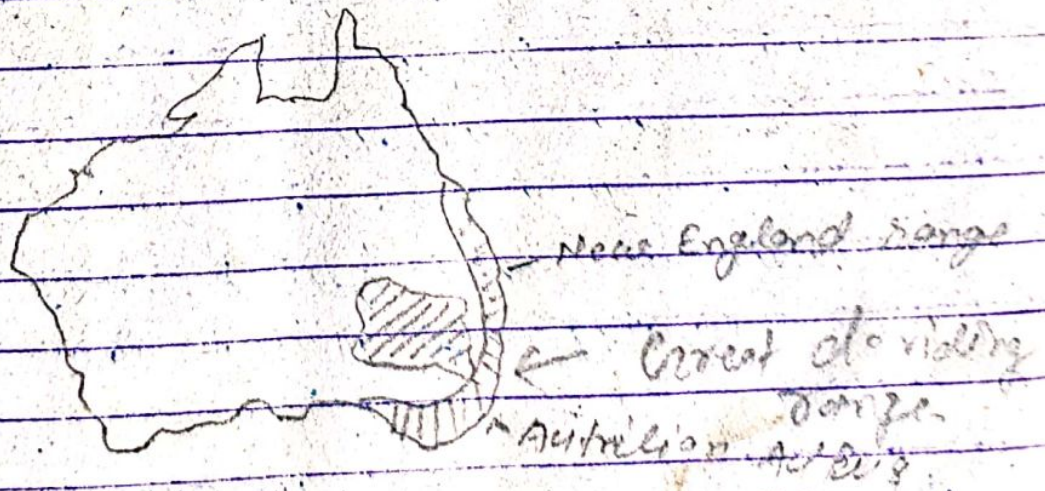 New England range
Great dividing
range
Australian